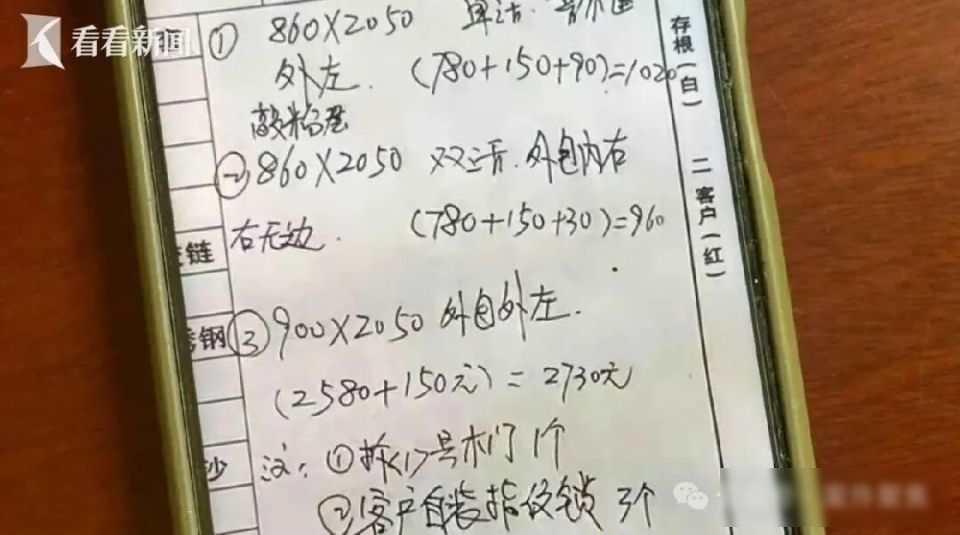 看看新闻
① 860×2050 单
外左. (780+150+90)=1020
② 860×2050 双 外包内右
右无边. (780+150+30)=960
③ 900×2050 外包外左.
(2580+150元) = 2730元
注: ①拆<1>号木门1个
②客户自装指纹锁 3个
链
钢
沙
存根(白) 二客户(红)